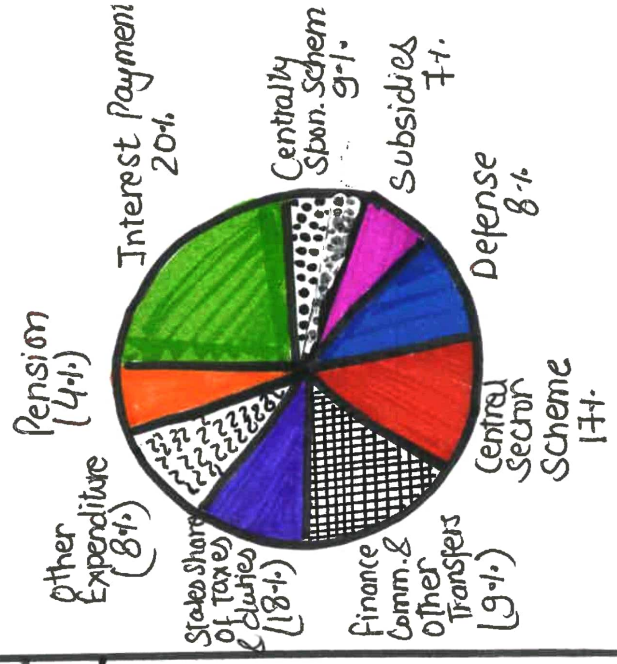 Interest Payment
20%
Centrally
Spon. Schem
9%
Subsidies
7%
Defense
8%
Central
Sector
Scheme
17%
Finance
Comm. &
Other
Transfers
(9%)
States Share
Of Taxes
& duties
(18%)
Other
Expenditure
(8%)
Pension
(4%)